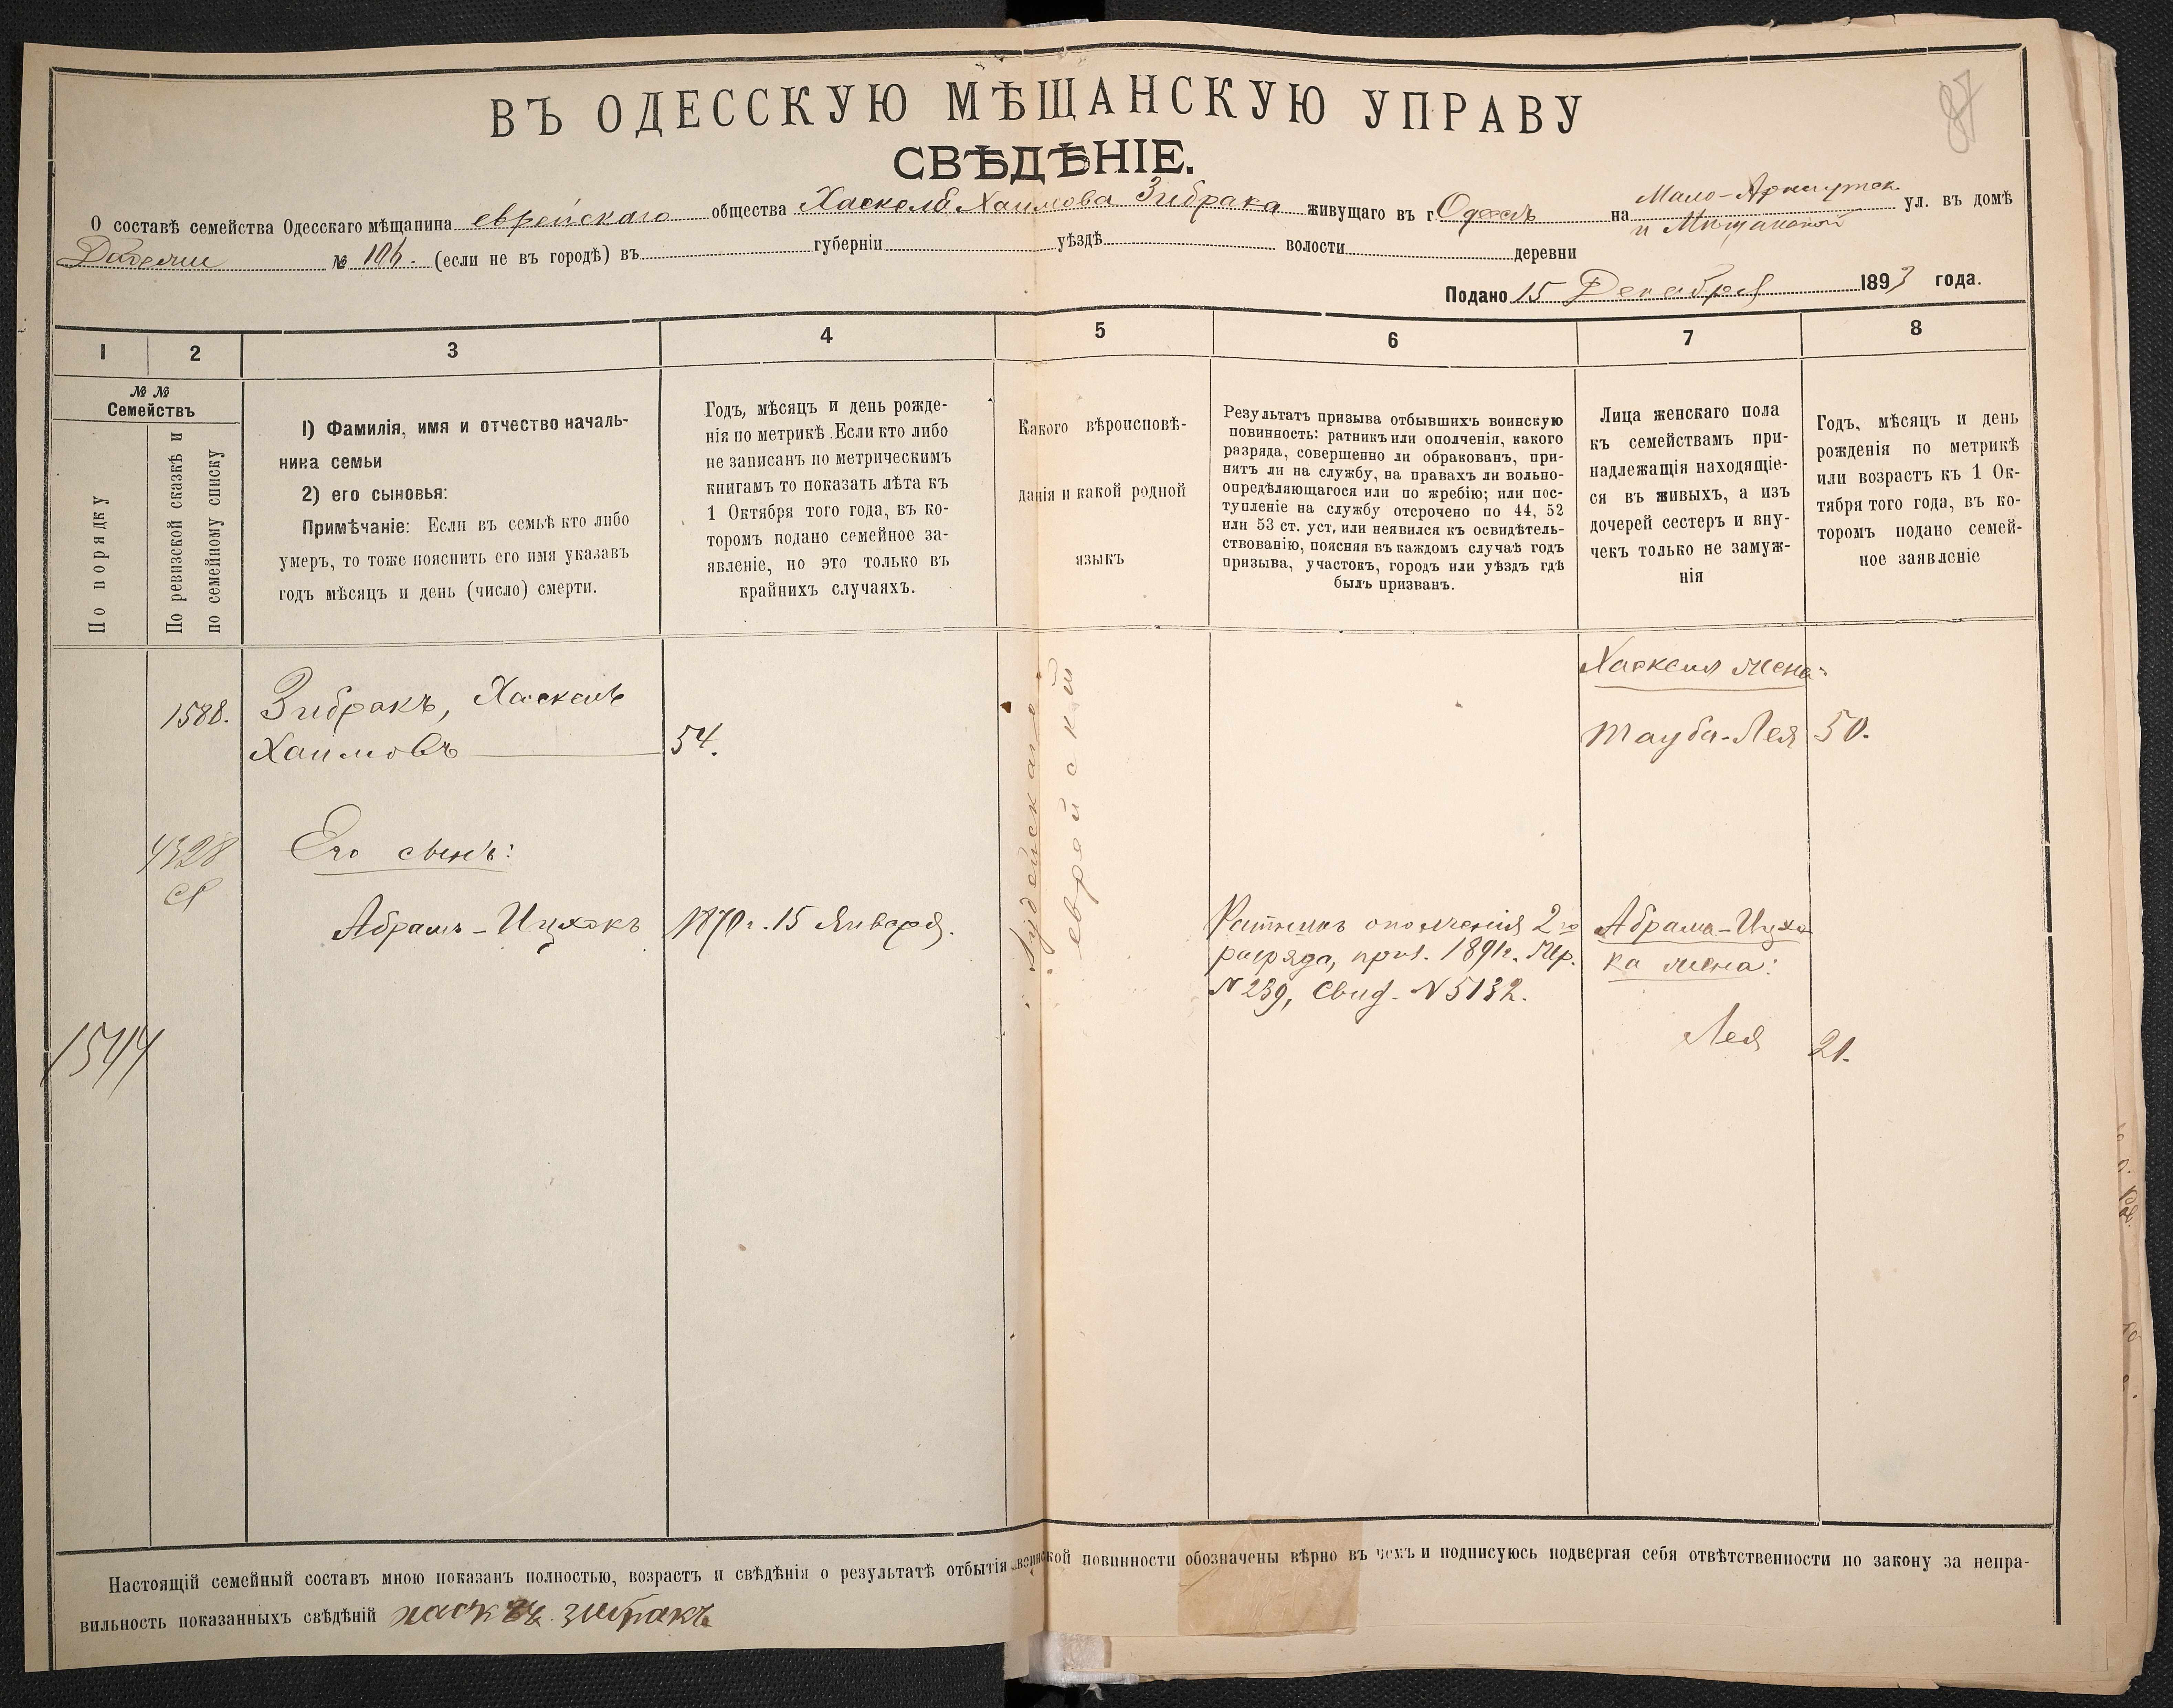 87
ВЪ ОДЕССКУЮ МѢЩАНСКУЮ УПРАВУ
СВѢДѢНІЕ.
О составѣ семейства Одесскаго мѣщанина еврейскаго общества Хаскеля Хаимова Зибрака живущаго въ г. Одессѣ на Мало-Арнаутск. и Мѣщанской ул. въ домѣ
№ 106. (если не въ городѣ) въ губерніи уѣздѣ волости деревни
Подано 15 Декабря 1893 года.
1 2 3 4 5 6 7 8
№ №
Семействъ
По порядку
По ревизской сказкѣ и
по семейному списку
1) Фамилія, имя и отчество началь-
ника семьи
2) его сыновья:
Примѣчаніе: Если въ семьѣ кто либо
умеръ, то тоже пояснить его имя указавъ
годъ мѣсяцъ и день (число) смерти.
Годъ, мѣсяцъ и день рожде-
нія по метрикѣ. Если кто либо
не записанъ по метрическимъ
книгамъ то показать лѣта къ
1 Октября того года, въ ко-
торомъ подано семейное за-
явленіе, но это только въ
крайнихъ случаяхъ.
Какого вѣроисповѣ-
данія и какой родной
языкъ
Результатъ призыва отбывшихъ воинскую
повинность: ратникъ или ополченія, какого
разряда, совершенно ли обракованъ, при-
нятъ ли на службу, на правахъ ли вольно-
опредѣляющагося или по жребію; или пос-
тупленіе на службу отсрочено по 44, 52
или 53 ст. уст, или неявился къ освидѣтель-
ствованію, поясняя въ каждомъ случаѣ годъ
призыва, участокъ, городъ или уѣздъ гдѣ
былъ призванъ.
Лица женскаго пола
къ семействамъ при-
надлежащія находящіе-
ся въ живыхъ, а изъ
дочерей сестеръ и вну-
чекъ только не замуж-
нія
Годъ, мѣсяцъ и день
рожденія по метрикѣ
или возрастъ къ 1 Ок-
тября того года, въ ко-
торомъ подано семей-
ное заявленіе
1588.
Зибракъ, Хаскель
Хаимовъ
54.
Іудейскаго
еврейскій
Хаскеля жена:
Тауба-Лея 50.
4328
Его сынъ:
Абрамъ-Ицхокъ 1870 г. 15 Января.
Ратникъ ополченія 2го
разряда, приз. 1891г. Жер.
№ 239, Свид. № 5132.
Абрама-Ицхо
ка жена:
Лея 21.
1544
Настоящій семейный составъ мною показанъ полностью, возрастъ и свѣдѣнія о результатѣ отбытія воинской повинности обозначены вѣрно въ чемъ и подписуюсь подвергая себя отвѣтственности по закону за непра-
вильность показанныхъ свѣдѣній зибракъ